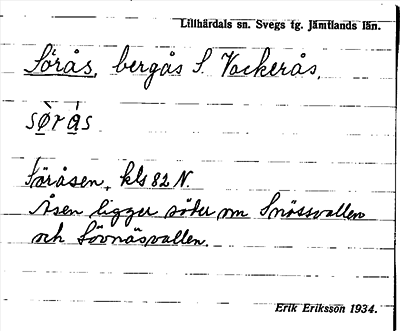 Lillhärdals sn. Svegs tg. Jämtlands län.
Sörås, bergås S. Vackerås.
sø̀r ás
Söråsen, kls 82 N.
Åsen ligger söder om Snössvallen
och Sövnäsvallen.
Erik Eriksson 1934.